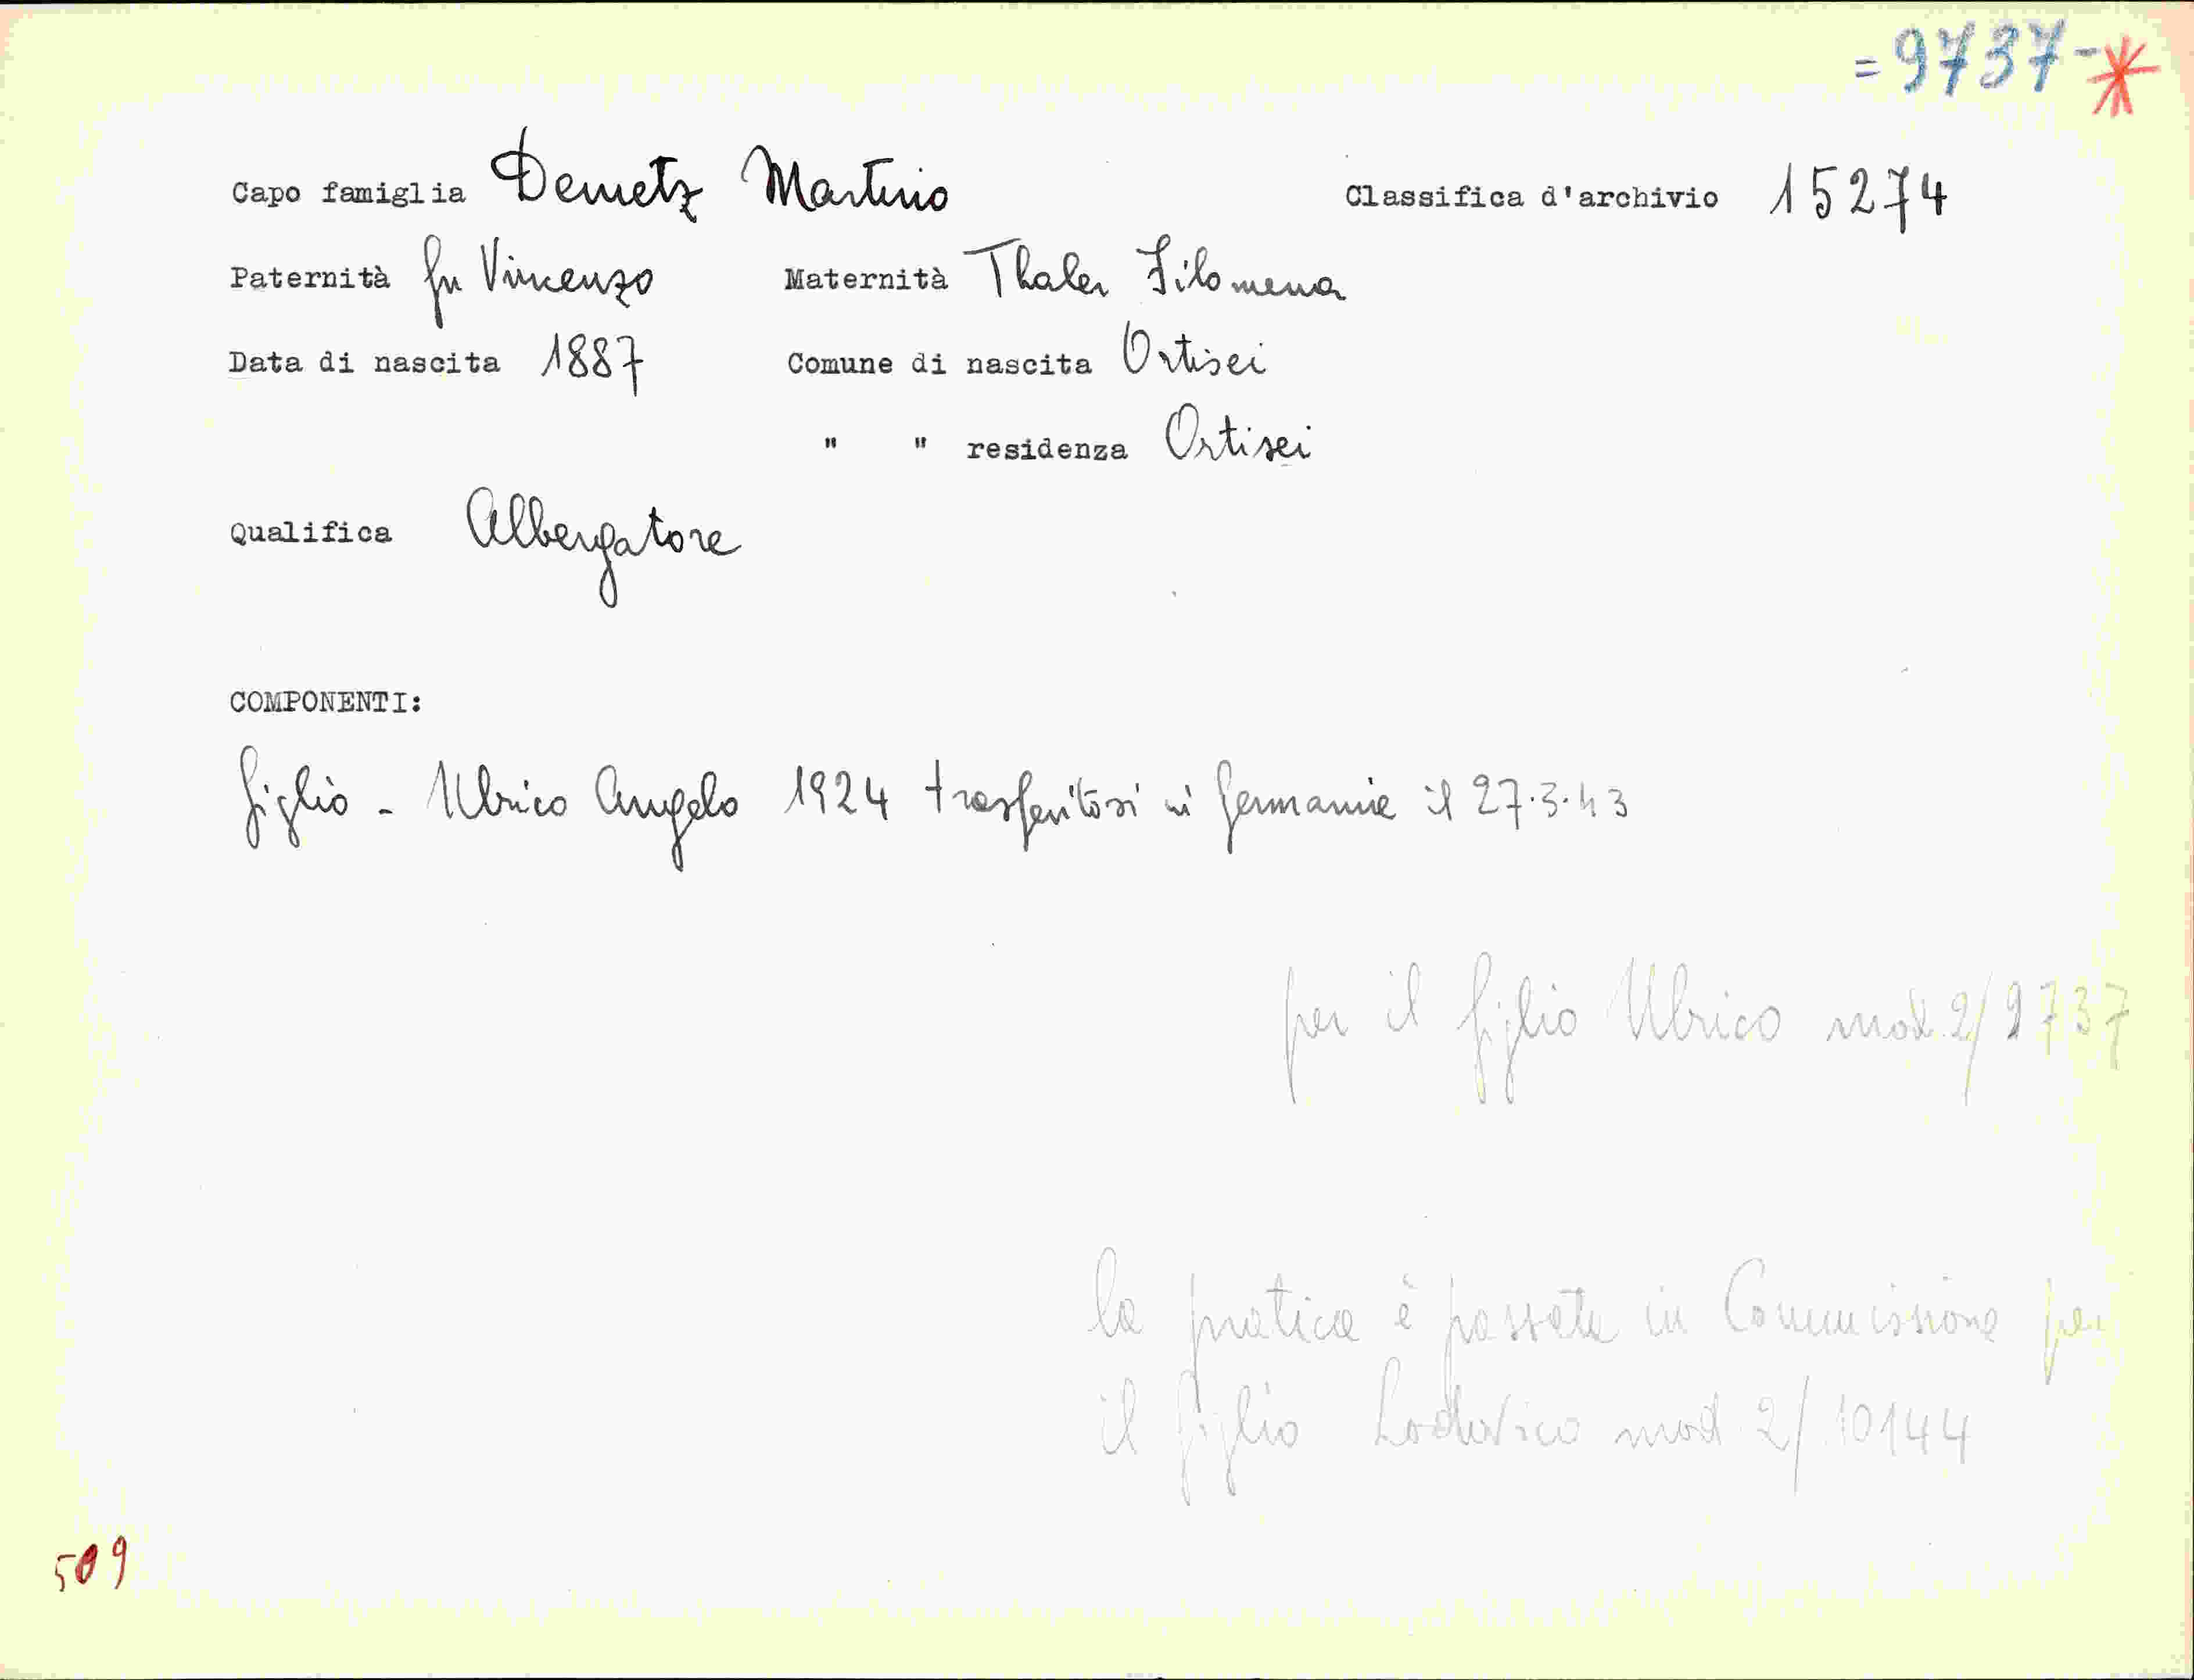 =9737-*
Capo famiglia Demetz Martino Classifica d'archivio 15274
Paternità fu Vincenzo Maternità Thaler Filomena
Data di nascita 1887 Comune di nascita Ortisei
" " residenza Ortisei
Qualifica Albergatore
COMPONENTI:
figlio - Ulrico Angelo 1924 trasferitosi in Germania il 27.3.43
per il figlio Ulrico mod. 2/9737
la pratica è passata in Commissione per
il figlio Lodovico mod. 2/10144
509